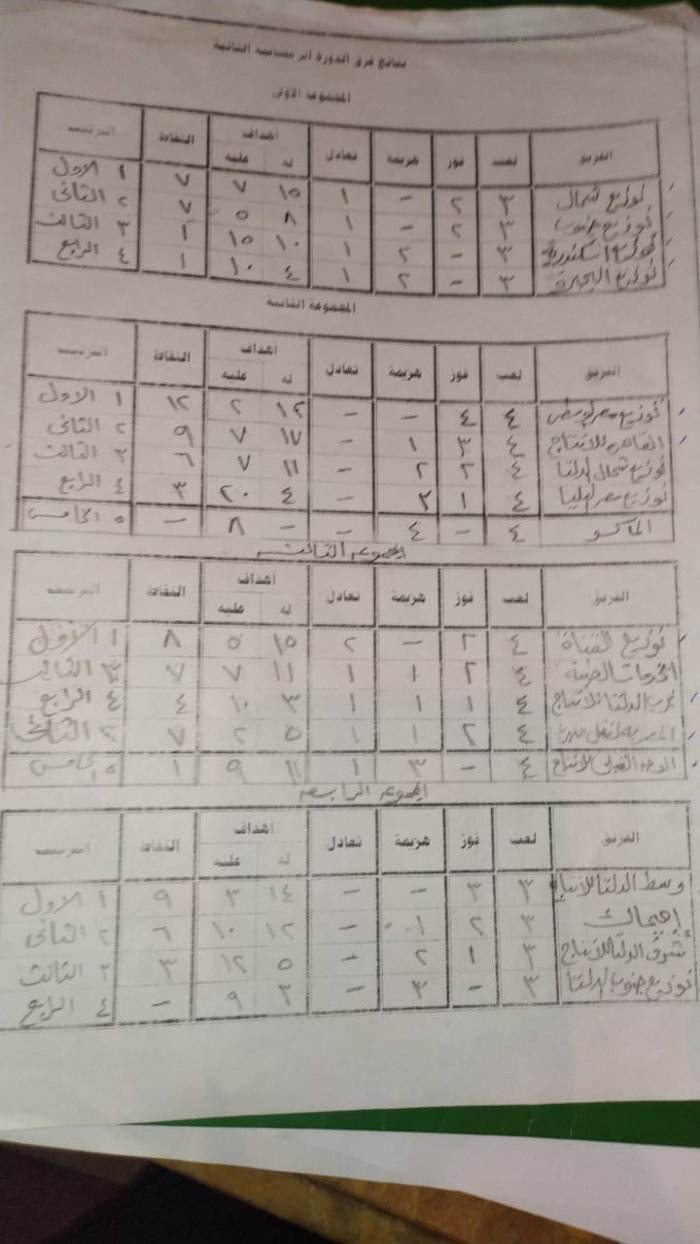 نتائج فرق الدورة الرمضانية الثانية
المجموعة الأولى
الفريق لعب فوز هزيمة تعادل أهداف له عليه النقاط الترتيب
توزيع شمال ٣ ٢ - ١ ١٥ ٧ ٧ ١ الأول
توزيع جنوب ٣ ٢ - ١ ٨ ٥ ٧ ٢ الثانى
اسكندرية ٣ - ٢ ١ ١٠ ١٥ ١ ٣ الثالث
توزيع البحيرة ٣ - ٢ ١ ٤ ١٠ ١ ٤ الرابع
المجموعة الثانية
الفريق لعب فوز هزيمة تعادل أهداف له عليه النقاط الترتيب
توزيع مصر الوسطى ٤ ٤ - - ١٢ ٢ ١٢ ١ الأول
القاهرة للانتاج ٤ ٣ ١ - ١٧ ٧ ٩ ٢ الثانى
توزيع شمال الدلتا ٤ ٢ ٢ - ١١ ٧ ٦ ٣ الثالث
توزيع مصر العليا ٤ ١ ٣ - ٤ ٢٠ ٣ ٤ الرابع
الماكو ٤ - ٤ - - ٨ - ٥ الخامس
المجموعة الثالثة
الفريق لعب فوز هزيمة تعادل أهداف له عليه النقاط الترتيب
توزيع القناة ٤ ٢ - ٢ ١٥ ٥ ٨ ١ الأول
الخدمات الطبية ٤ ٢ ١ ١ ١١ ٧ ٧ ٣ الثالث
غرب الدلتا للانتاج ٤ ١ ١ ١ ٣ ١٠ ٤ ٤ الرابع
المصرية لنقل الكهرباء ٤ ٢ ١ ١ ٥ ٢ ٧ ٢ الثانى
الوجه القبلى للانتاج ٤ - ٣ ١ ١١ ٩ ١ ٥ الخامس
المجموعة الرابعة
الفريق لعب فوز هزيمة تعادل أهداف له عليه النقاط الترتيب
وسط الدلتا للانتاج ٣ ٣ - - ١٤ ٣ ٩ ١ الأول
إجيماك ٣ ٢ ١ - ١٢ ١٠ ٦ ٢ الثانى
شرق الدلتا للانتاج ٣ ١ ٢ - ٥ ١٢ ٣ ٣ الثالث
توزيع جنوب الدلتا ٣ - ٣ - ٢ ٩ - ٤ الرابع